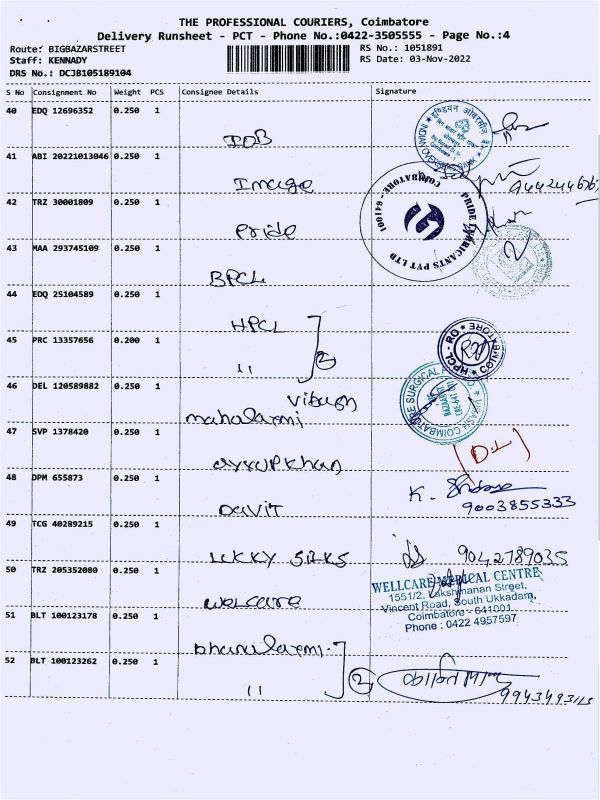 THE PROFESSIONAL COURIERS, Coimbatore
Delivery Runsheet - PCT - Phone No.:0422-3505555 - Page No.:4
Route: BIGBAZARSTREET
RS No.: 1051891
Staff: KENNADY
RS Date: 03-Nov-2022
DRS No.: DCJB105189104
S No Consignment No Weight PCS Consignee Details Signature
40 EDQ 12696352 0.250 1
IOB
41 ABI 20221013046 0.250 1
Image
42 TRZ 30001809 0.250 1
Pride
PRIDE
PVT LTD
COIMBATORE - 641001
43 MAA 293745109 0.250 1
BPCL
44 EDQ 25104589 0.250 1
HPCL
45 PRC 13357656 0.200 1
"
2
HPCL - RO
COIMBATORE
46 DEL 120589882 0.250 1
mahalaxmi
COIMBATORE SURGICAL
47 SVP 1378420 0.250 1
ayyupkhan
48 DPM 655873 0.250 1
Davit
K.
9003855333
49 TCG 40289215 0.250 1
LUKKY SILKS
9042789035
50 TRZ 205352080 0.250 1
welcare
WELLCARE MEDICAL CENTRE
1551/2, Lakshmanan Street,
Vincent Road, South Ukkadam,
Coimbatore - 641001
Phone : 0422 4957597
51 BLT 100123178 0.250 1
52 BLT 100123262 0.250 1
"
2